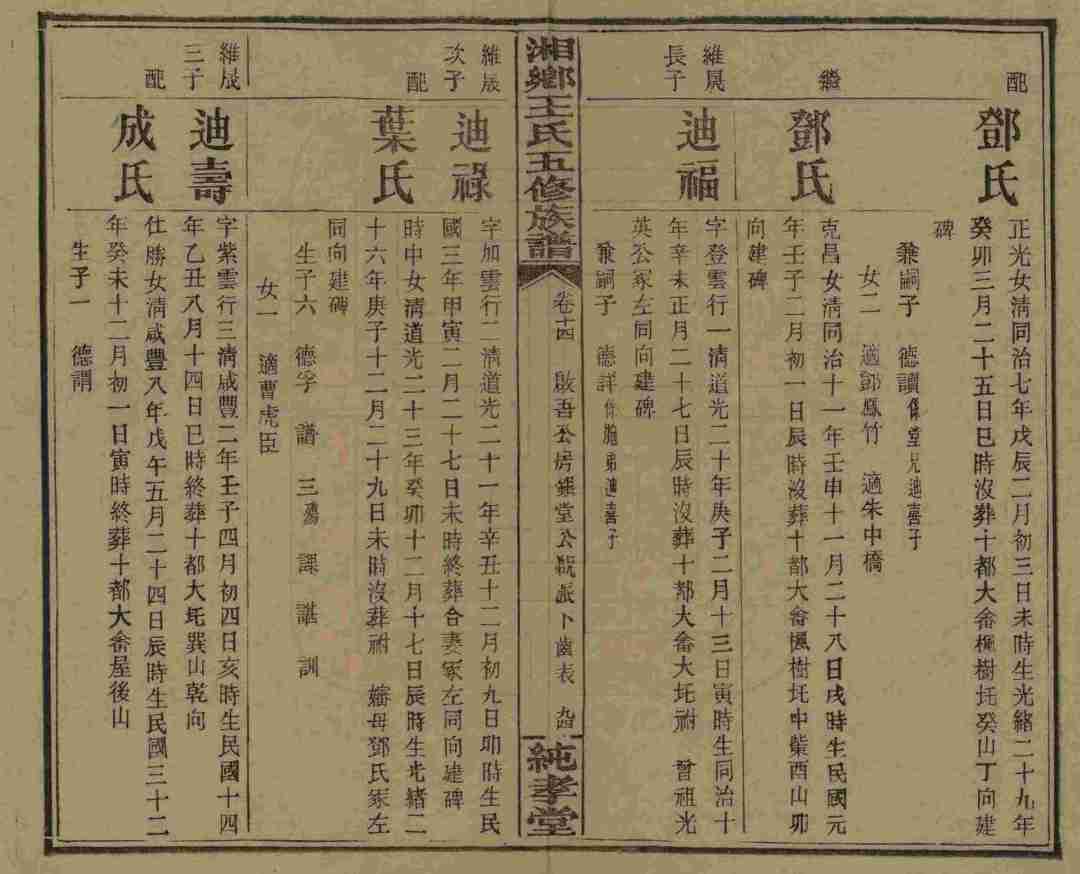 配
鄧氏
正光女清同治七年戊辰二月初三日未時生光緒二十九年
癸卯三月二十五日巳時沒葬十都大畬楓樹圫癸山丁向建
碑
兼嗣子 德讀係堂兄迪喜子
女二 適鄧鳳竹 適朱中橋
繼
鄧氏
克昌女清同治十一年壬申十一月二十八日戌時生民國元
年壬子二月初一日辰時沒葬十都大畬楓樹圫中嘴酉山卯
向建碑
維晟
長子
迪福
字登雲行一清道光二十年庚子二月十三日寅時生同治十
年辛未正月二十七日辰時沒葬十都大畬大圫祔 曾祖光
英公冢左同向建碑
兼嗣子 德詳係胞弟迪喜子
湘鄉王氏五修族譜
卷十四 啟吾公房 堂公 派下齒表 九四
純孝堂
維晟
次子
迪祿
字加雲行二清道光二十一年辛丑十二月初九日卯時生民
國三年甲寅二月二十七日未時終葬合妻冢左同向建碑
配
葉氏
時中女清道光二十三年癸卯十二月十七日辰時生光緒二
十六年庚子十二月二十九日未時沒葬祔 嬸母鄧氏冢左
同向建碑
生子六 德孚 譜 三殤 課 諶 訓
女一 適曹虎臣
維晟
三子
迪壽
字紫雲行三清咸豐二年壬子四月初四日亥時生民國十四
年乙丑八月十四日巳時終葬十都大圫巽山乾向
配
成氏
仕勝女清咸豐八年戊午五月二十四日辰時生民國三十二
年癸未十二月初一日寅時終葬十都大畬屋後山
生子一 德謂